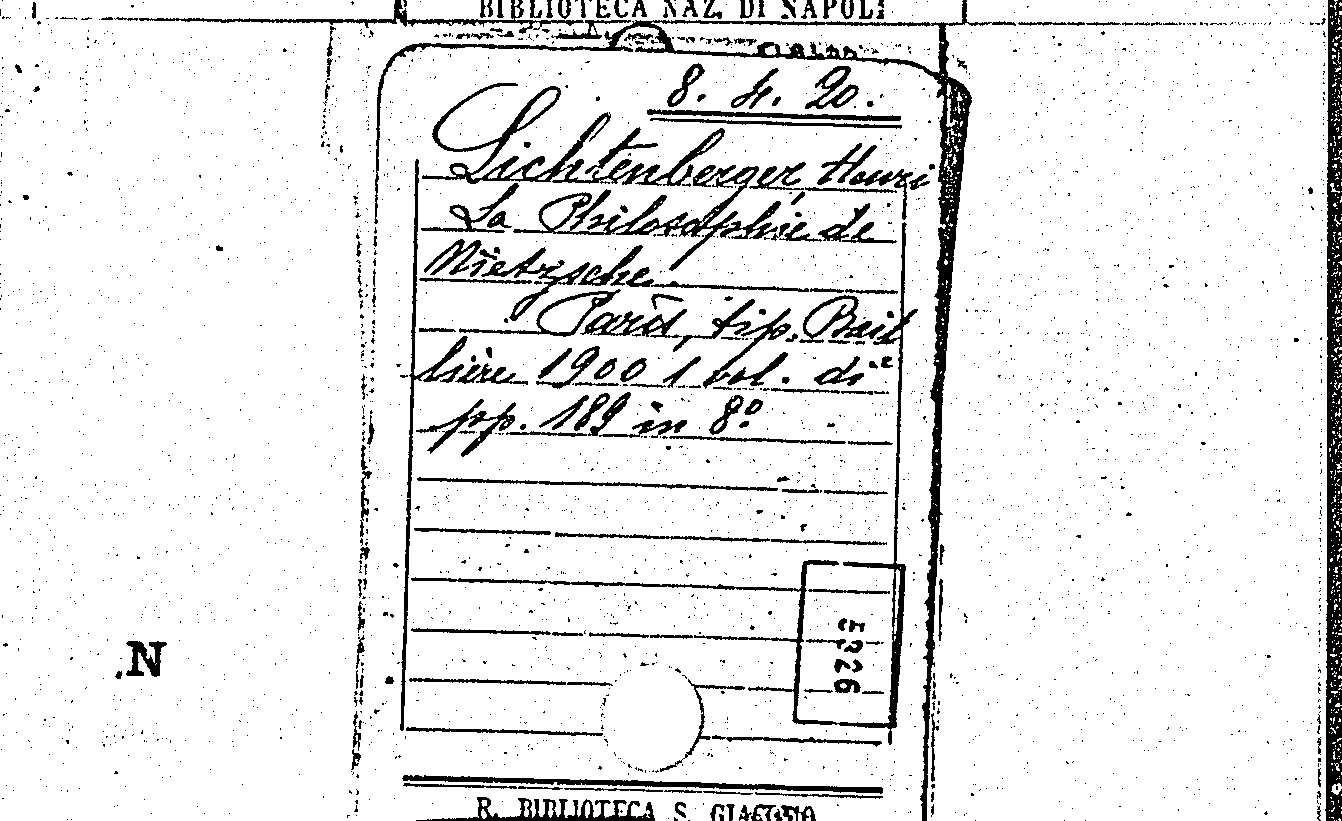 BIBLIOTECA NAZ. DI NAPOLI
8. 4. 20.
Lichtenberger, Henri
La Philosophie de
Nietzsche.
Paris, tip. Bail
lière 1900 1 vol. di
pp. 189 in 8.º
5326
N
R. BIBLIOTECA S. GIACOMO